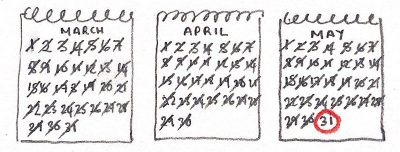 MARCH
1 2 3 4 5 6 7
8 9 10 11 12 13 14
15 16 17 18 19 20 21
22 23 24 25 26 27 28
29 30 31
APRIL
1 2 3 4 5 6 7
8 9 10 11 12 13 14
15 16 17 18 19 20 21
22 23 24 25 26 27 28
29 30
MAY
1 2 3 4 5 6 7
8 9 10 11 12 13 14
15 16 17 18 19 20 21
22 23 24 25 26 27 28
29 30 31